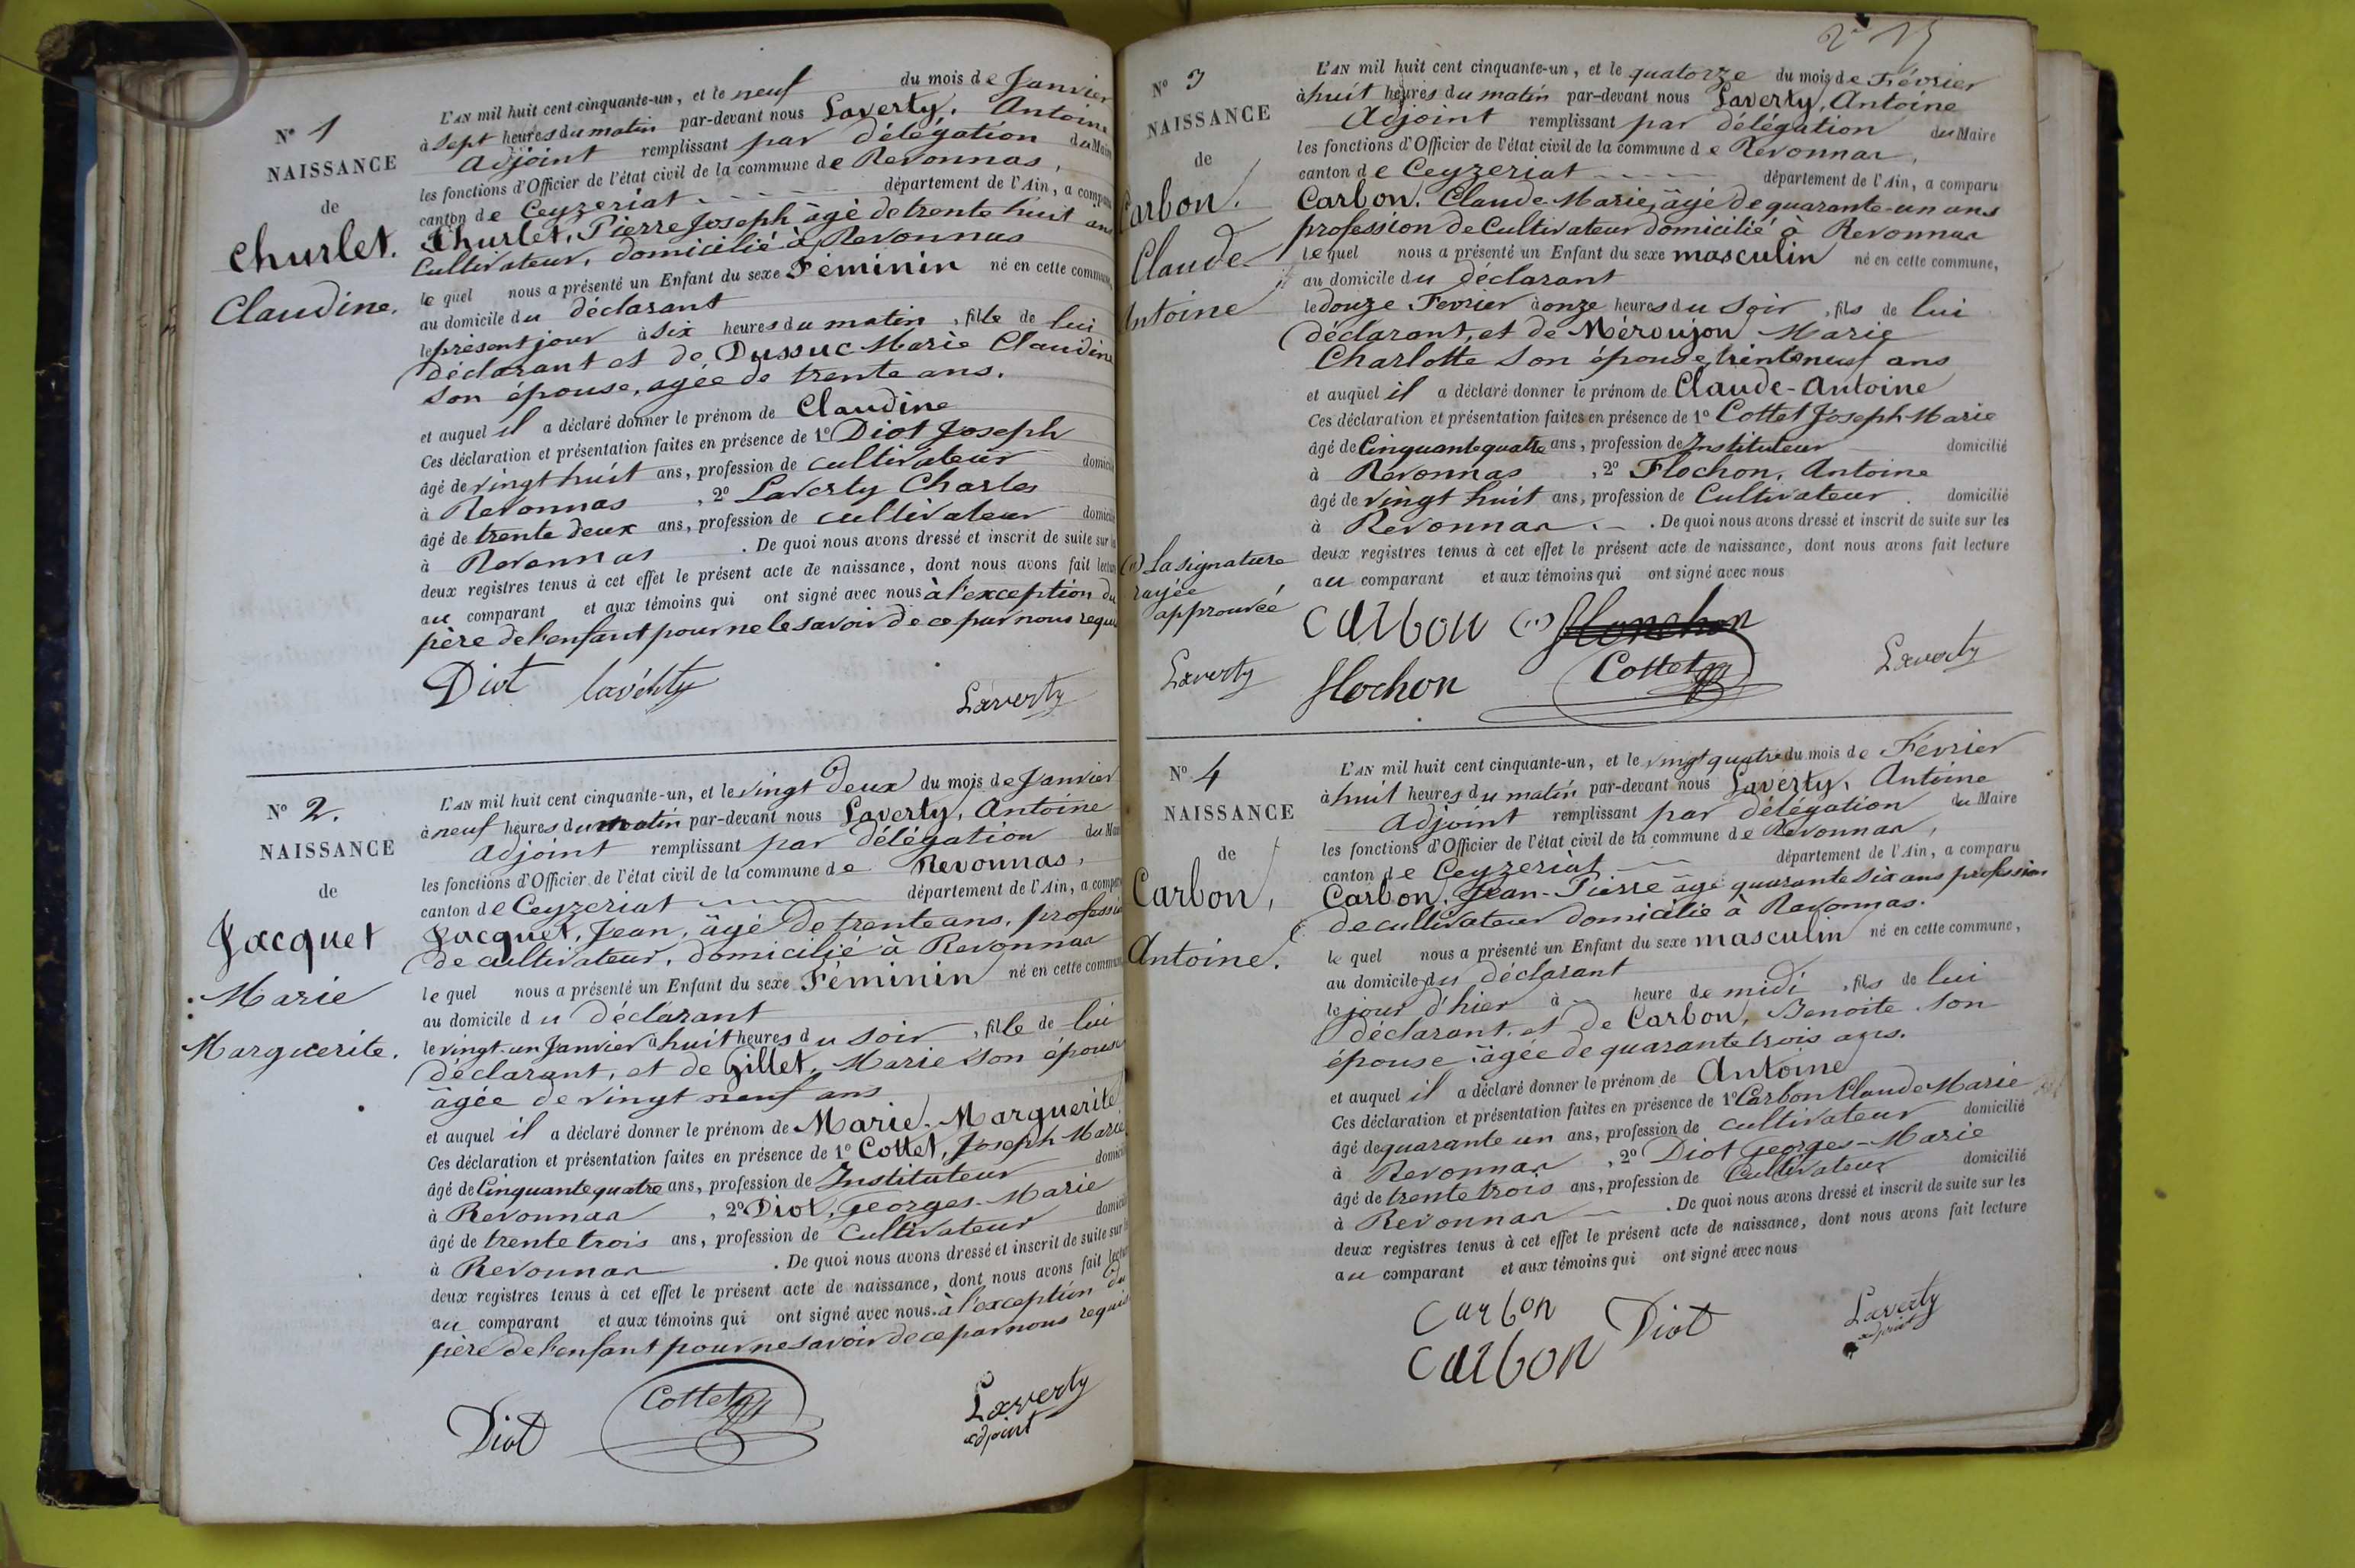 N° 1
NAISSANCE
de
Churlet.
Claudine.
L'AN mil huit cent cinquante-un, et le neuf du mois de Janvier
à sept heures du matin par-devant nous Laverty, Antoine
Adjoint remplissant par délégation du Maire
les fonctions d'Officier de l'état civil de la commune de Revonnas,
canton de Ceyzeriat département de l'Ain, a comparu
Churlet, Pierre Joseph âgé de trente huit ans
Cultivateur, domicilié à Revonnas
le quel nous a présenté un Enfant du sexe Féminin né en cette commune,
au domicile du déclarant
le présent jour à six heures du matin, fille de lui
déclarant et de Dussuc Marie Claudine
son épouse, agée de trente ans.
et auquel il a déclaré donner le prénom de Claudine
Ces déclaration et présentation faites en présence de 1° Diot Joseph
âgé de vingt huit ans, profession de cultivateur domicilié
à Revonnas, 2° Laverty Charles
âgé de trente deux ans, profession de cultivateur domicilié
à Revonnas. De quoi nous avons dressé et inscrit de suite sur les
deux registres tenus à cet effet le présent acte de naissance, dont nous avons fait lecture
au comparant et aux témoins qui ont signé avec nous à l'exception du
père de l'enfant pour ne le savoir de ce par nous requis
Diot Lavérty Laverty
N° 2.
NAISSANCE
de
Jacquet
Marie
Marguerite.
L'AN mil huit cent cinquante-un, et le vingt deux du mois de Janvier
à neuf heures du matin par-devant nous Laverty, Antoine
Adjoint remplissant par délégation du Maire
les fonctions d'Officier de l'état civil de la commune de Revonnas,
canton de Ceyzeriat département de l'Ain, a comparu
Jacquet, Jean, âgé de trente ans, profession
de cultivateur, domicilié à Revonnas
le quel nous a présenté un Enfant du sexe Féminin né en cette commune,
au domicile du déclarant
le vingt-un Janvier à huit heures du soir, fille de lui
déclarant, et de Gillet, Marie son épouse
âgée de vingt neuf ans
et auquel il a déclaré donner le prénom de Marie-Marguerite
Ces déclaration et présentation faites en présence de 1° Cottet, Joseph Marie
âgé de Cinquante quatre ans, profession de Instituteur domicilié
à Revonnas, 2° Diot, Georges-Marie
âgé de trente trois ans, profession de Cultivateur domicilié
à Revonnas. De quoi nous avons dressé et inscrit de suite sur les
deux registres tenus à cet effet le présent acte de naissance, dont nous avons fait lecture
au comparant et aux témoins qui ont signé avec nous à l'exception du
père de l'enfant pour ne savoir de ce par nous requis
Diot Cottet Laverty
adjoint
2 15
N° 3
NAISSANCE
de
Carbon.
Claude
Antoine
L'AN mil huit cent cinquante-un, et le quatorze du mois de Février
à huit heures du matin par-devant nous Laverty, Antoine
Adjoint remplissant par délégation du Maire
les fonctions d'Officier de l'état civil de la commune de Revonnas,
canton de Ceyzeriat département de l'Ain, a comparu
Carbon, Claude-Marie, âgé de quarante-un ans
profession de Cultivateur domicilié à Revonnas
le quel nous a présenté un Enfant du sexe masculin né en cette commune,
au domicile du déclarant
le douze Fevrier à onze heures du soir, fils de lui
déclarant, et de Méroujon Marie
Charlotte son épouse, trente neuf ans
et auquel il a déclaré donner le prénom de Claude-Antoine
Ces déclaration et présentation faites en présence de 1° Cottet Joseph-Marie
âgé de Cinquante quatre ans, profession de Instituteur domicilié
à Revonnas, 2° Flochon, Antoine
âgé de vingt huit ans, profession de Cultivateur domicilié
à Revonnas. De quoi nous avons dressé et inscrit de suite sur les
deux registres tenus à cet effet le présent acte de naissance, dont nous avons fait lecture
au comparant et aux témoins qui ont signé avec nous
(1) La signature
rayée
approuvée
Laverty
Carbon (1) flonchon
flochon Cottet Laverty
N° 4
NAISSANCE
de
Carbon,
Antoine.
L'AN mil huit cent cinquante-un, et le vingt quatre du mois de Février
à huit heures du matin par-devant nous Laverty, Antoine
Adjoint remplissant par délégation du Maire
les fonctions d'Officier de l'état civil de la commune de Revonnas,
canton de Ceyzeriat département de l'Ain, a comparu
Carbon, Jean-Pierre âgé quarante six ans profession
de cultivateur domicilié à Revonnas.
le quel nous a présenté un Enfant du sexe masculin né en cette commune,
au domicile du déclarant
le jour d'hier à heure de midi, fils de lui
déclarant et de Carbon, Benoite son
épouse, âgée de quarante trois ans.
et auquel il a déclaré donner le prénom de Antoine
Ces déclaration et présentation faites en présence de 1° Carbon Claude Marie
âgé de quarante un ans, profession de cultivateur domicilié
à Revonnas, 2° Diot Georges-Marie
âgé de trente trois ans, profession de Cultivateur domicilié
à Revonnas. De quoi nous avons dressé et inscrit de suite sur les
deux registres tenus à cet effet le présent acte de naissance, dont nous avons fait lecture
au comparant et aux témoins qui ont signé avec nous
Carbon Diot Laverty
Carbon adjoint